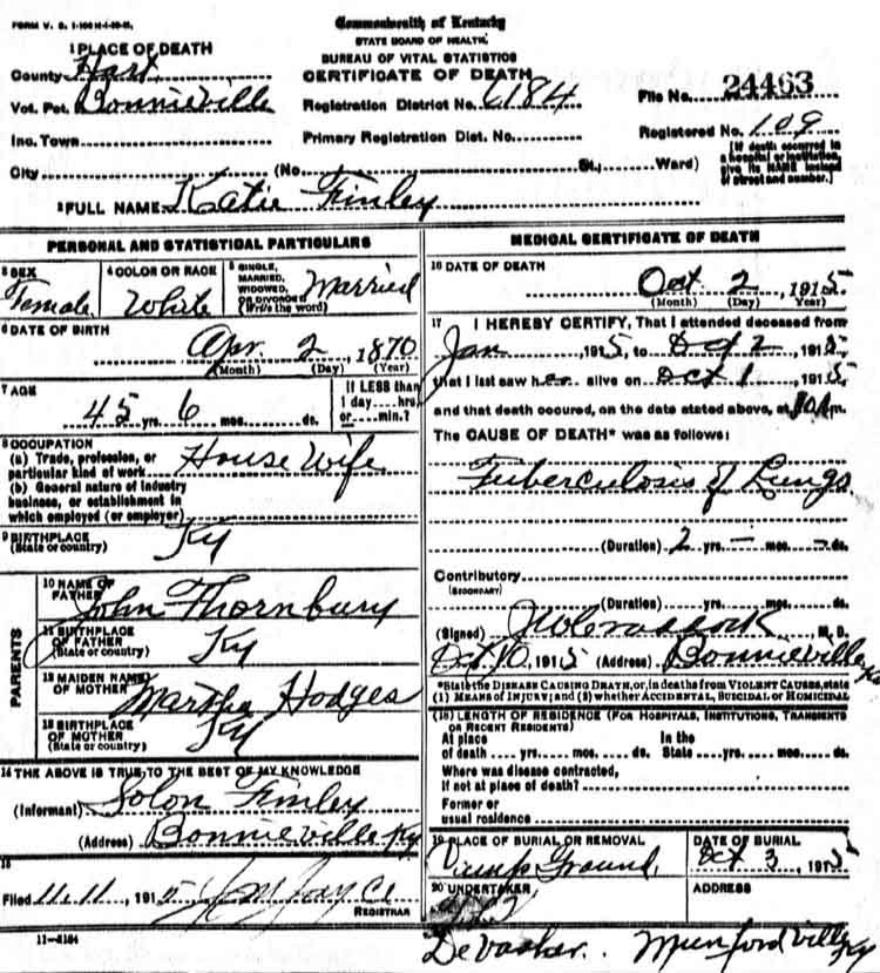 FORM V. S. 1-
Commonwealth of Kentucky
STATE BOARD OF HEALTH,
BUREAU OF VITAL STATISTICS
CERTIFICATE OF DEATH
1 PLACE OF DEATH
County Hart
Vot. Pct. Bonnieville
Inc. Town
City (No. St., Ward)
Registration District No. 6184
Primary Registration Dist. No.
File No. 24463
Registered No. 109
[If death occurred in a hospital or institution, give its NAME instead of street and number.]
2 FULL NAME Katie Finley
PERSONAL AND STATISTICAL PARTICULARS
3 SEX Female
4 COLOR OR RACE White
5 SINGLE, MARRIED, WIDOWED, OR DIVORCED (Write the word) Married
6 DATE OF BIRTH
Apr. 2, 1870
(Month) (Day) (Year)
7 AGE
45 yrs. 6 mos. ds.
If LESS than 1 day hrs. or min.?
8 OCCUPATION
(a) Trade, profession, or particular kind of work House Wife
(b) General nature of industry business, or establishment in which employed (or employer)
9 BIRTHPLACE (State or country) Ky
PARENTS
10 NAME OF FATHER John Thornbury
11 BIRTHPLACE OF FATHER (State or country) Ky
12 MAIDEN NAME OF MOTHER Martha Hodges
13 BIRTHPLACE OF MOTHER (State or country) Ky
14 THE ABOVE IS TRUE TO THE BEST OF MY KNOWLEDGE
(Informant) Solon Finley
(Address) Bonnieville Ky
15
Filed 11.11, 1915
REGISTRAR
11-2184
MEDICAL CERTIFICATE OF DEATH
16 DATE OF DEATH
Oct 2, 1915
(Month) (Day) (Year)
17 I HEREBY CERTIFY, That I attended deceased from
Jan, 1915, to Oct 2, 1915,
that I last saw her alive on Oct 1, 1915,
and that death occured, on the date stated above, at m.
The CAUSE OF DEATH* was as follows:
Tuberculosis of Lungs
(Duration) 2 yrs. - mos. - ds.
Contributory
(SECONDARY)
(Duration) yrs. mos. ds.
(Signed) M. D.
Oct 10, 1915 (Address) Bonnieville Ky
*State the DISEASE CAUSING DEATH, or, in deaths from VIOLENT CAUSES, state
(1) MEANS OF INJURY; and (2) whether ACCIDENTAL, SUICIDAL or HOMICIDAL
(18) LENGTH OF RESIDENCE (FOR HOSPITALS, INSTITUTIONS, TRANSIENTS OR RECENT RESIDENTS)
At place of death yrs. mos. ds. In the State yrs. mos. ds.
Where was disease contracted,
If not at place of death?
Former or
usual residence
19 PLACE OF BURIAL OR REMOVAL
Ground
DATE OF BURIAL
Oct 3, 1915
20 UNDERTAKER
ADDRESS
DeVasher. Munfordville Ky